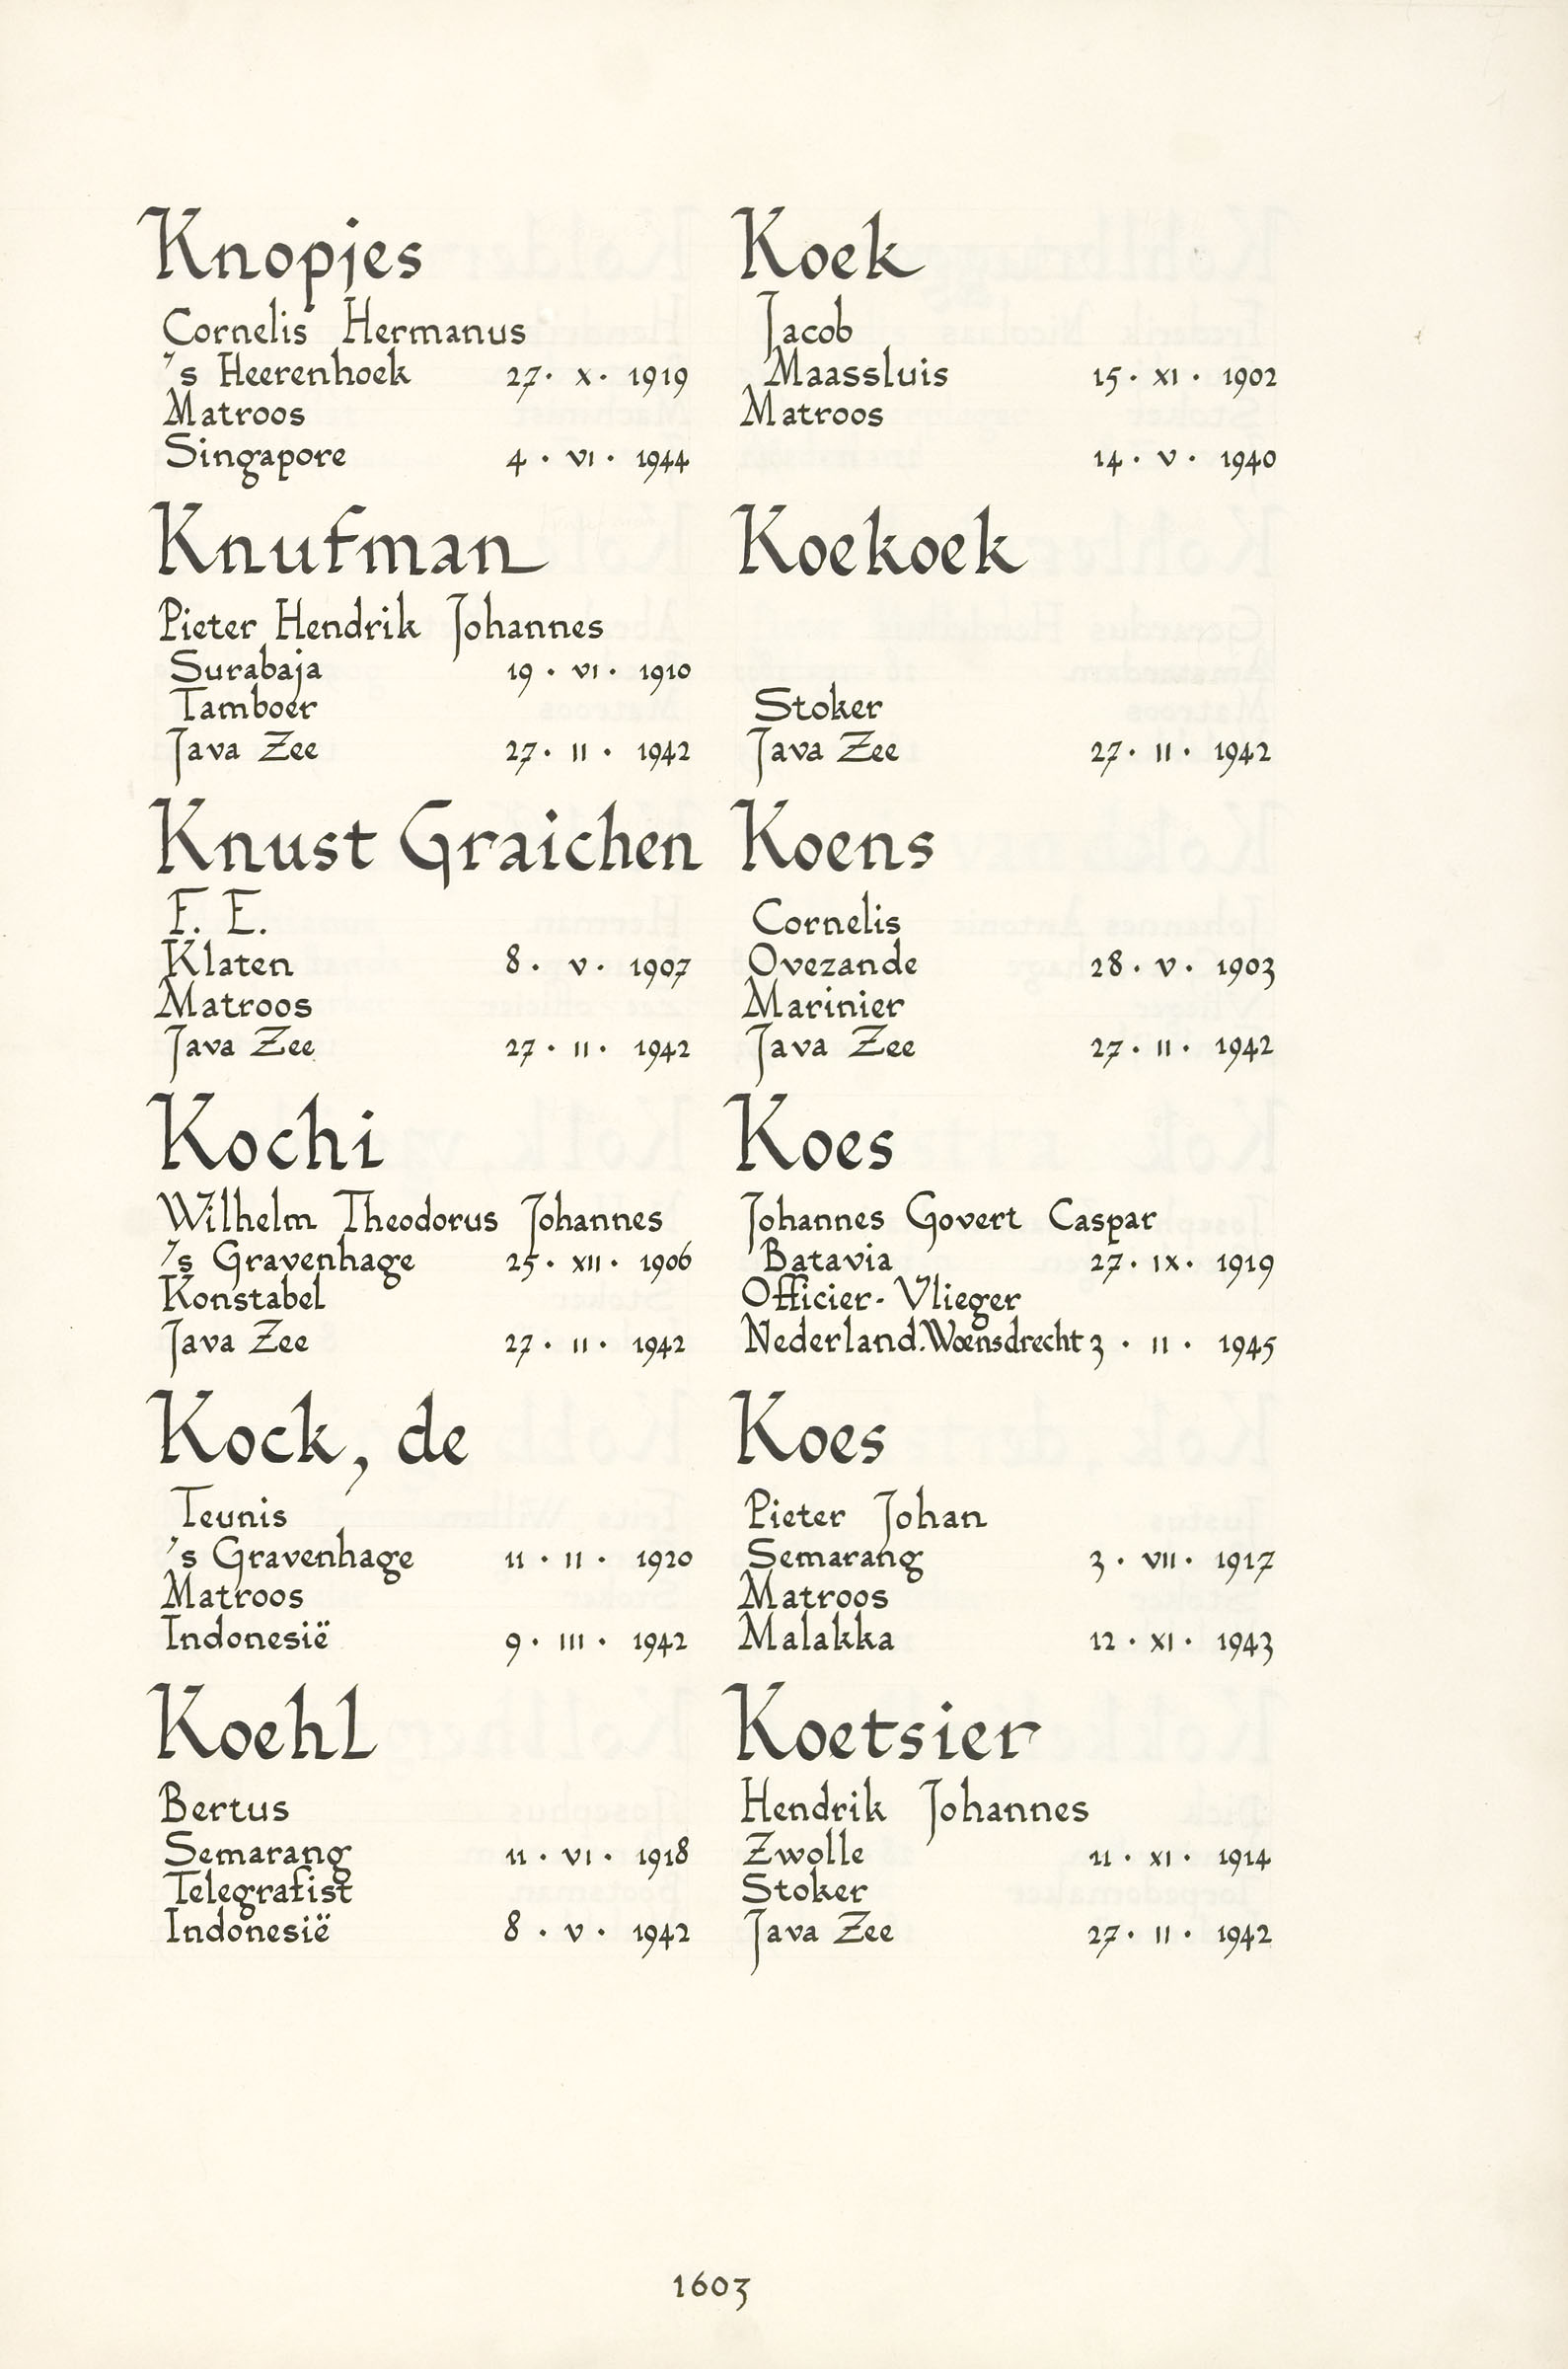 Knopjes
Cornelis Hermanus
's Heerenhoek 27 · X · 1919
Matroos
Singapore 4 · VI · 1944
Knufman
Pieter Hendrik Johannes
Surabaja 19 · VI · 1910
Tamboer
Java Zee 27 · II · 1942
Knust Graichen
F. E.
Klaten 8 · V · 1907
Matroos
Java Zee 27 · II · 1942
Kochi
Wilhelm Theodorus Johannes
's Gravenhage 25 · XII · 1906
Konstabel
Java Zee 27 · II · 1942
Kock, de
Teunis
's Gravenhage 11 · II · 1920
Matroos
Indonesië 9 · III · 1942
Koehl
Bertus
Semarang 11 · VI · 1918
Telegrafist
Indonesië 8 · V · 1942
Koek
Jacob
Maassluis 15 · XI · 1902
Matroos
14 · V · 1940
Koekoek
Stoker
Java Zee 27 · II · 1942
Koens
Cornelis
Ovezande 28 · V · 1903
Marinier
Java Zee 27 · II · 1942
Koes
Johannes Govert Caspar
Batavia 27 · IX · 1919
Officier-Vlieger
Nederland.Woensdrecht 3 · II · 1945
Koes
Pieter Johan
Semarang 3 · VII · 1917
Matroos
Malakka 12 · XI · 1943
Koetsier
Hendrik Johannes
Zwolle 11 · XI · 1914
Stoker
Java Zee 27 · II · 1942
1603